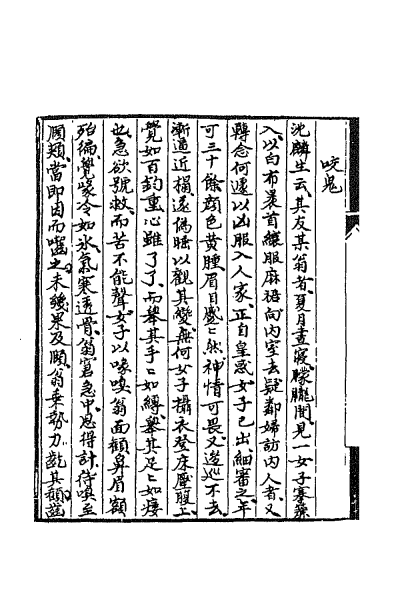 咬鬼
沈麟生云其友某翁者夏月晝寢朦朧間見一女子搴簾
入以白布裹首縗服麻裙向內室去疑鄰婦訪內人者又
轉念何遽以凶服入人家正自皇惑女子已出細審之年
可三十餘顏色黃腫眉目蹙蹙然神情可畏又逡巡不去
漸逼近榻遂偽睡以觀其變無何女子攝衣登床壓腹上
覺如百鈞重心雖了了而舉其手手如縛舉其足足如痿
也急欲號救而苦不能聲女子以喙嗅翁面顴鼻眉額
殆徧覺喙冷如冰氣寒透骨翁窘急中思得計待嗅至
頤頰當即因而嚙之未幾果及頤翁乘勢力齕其顴齒